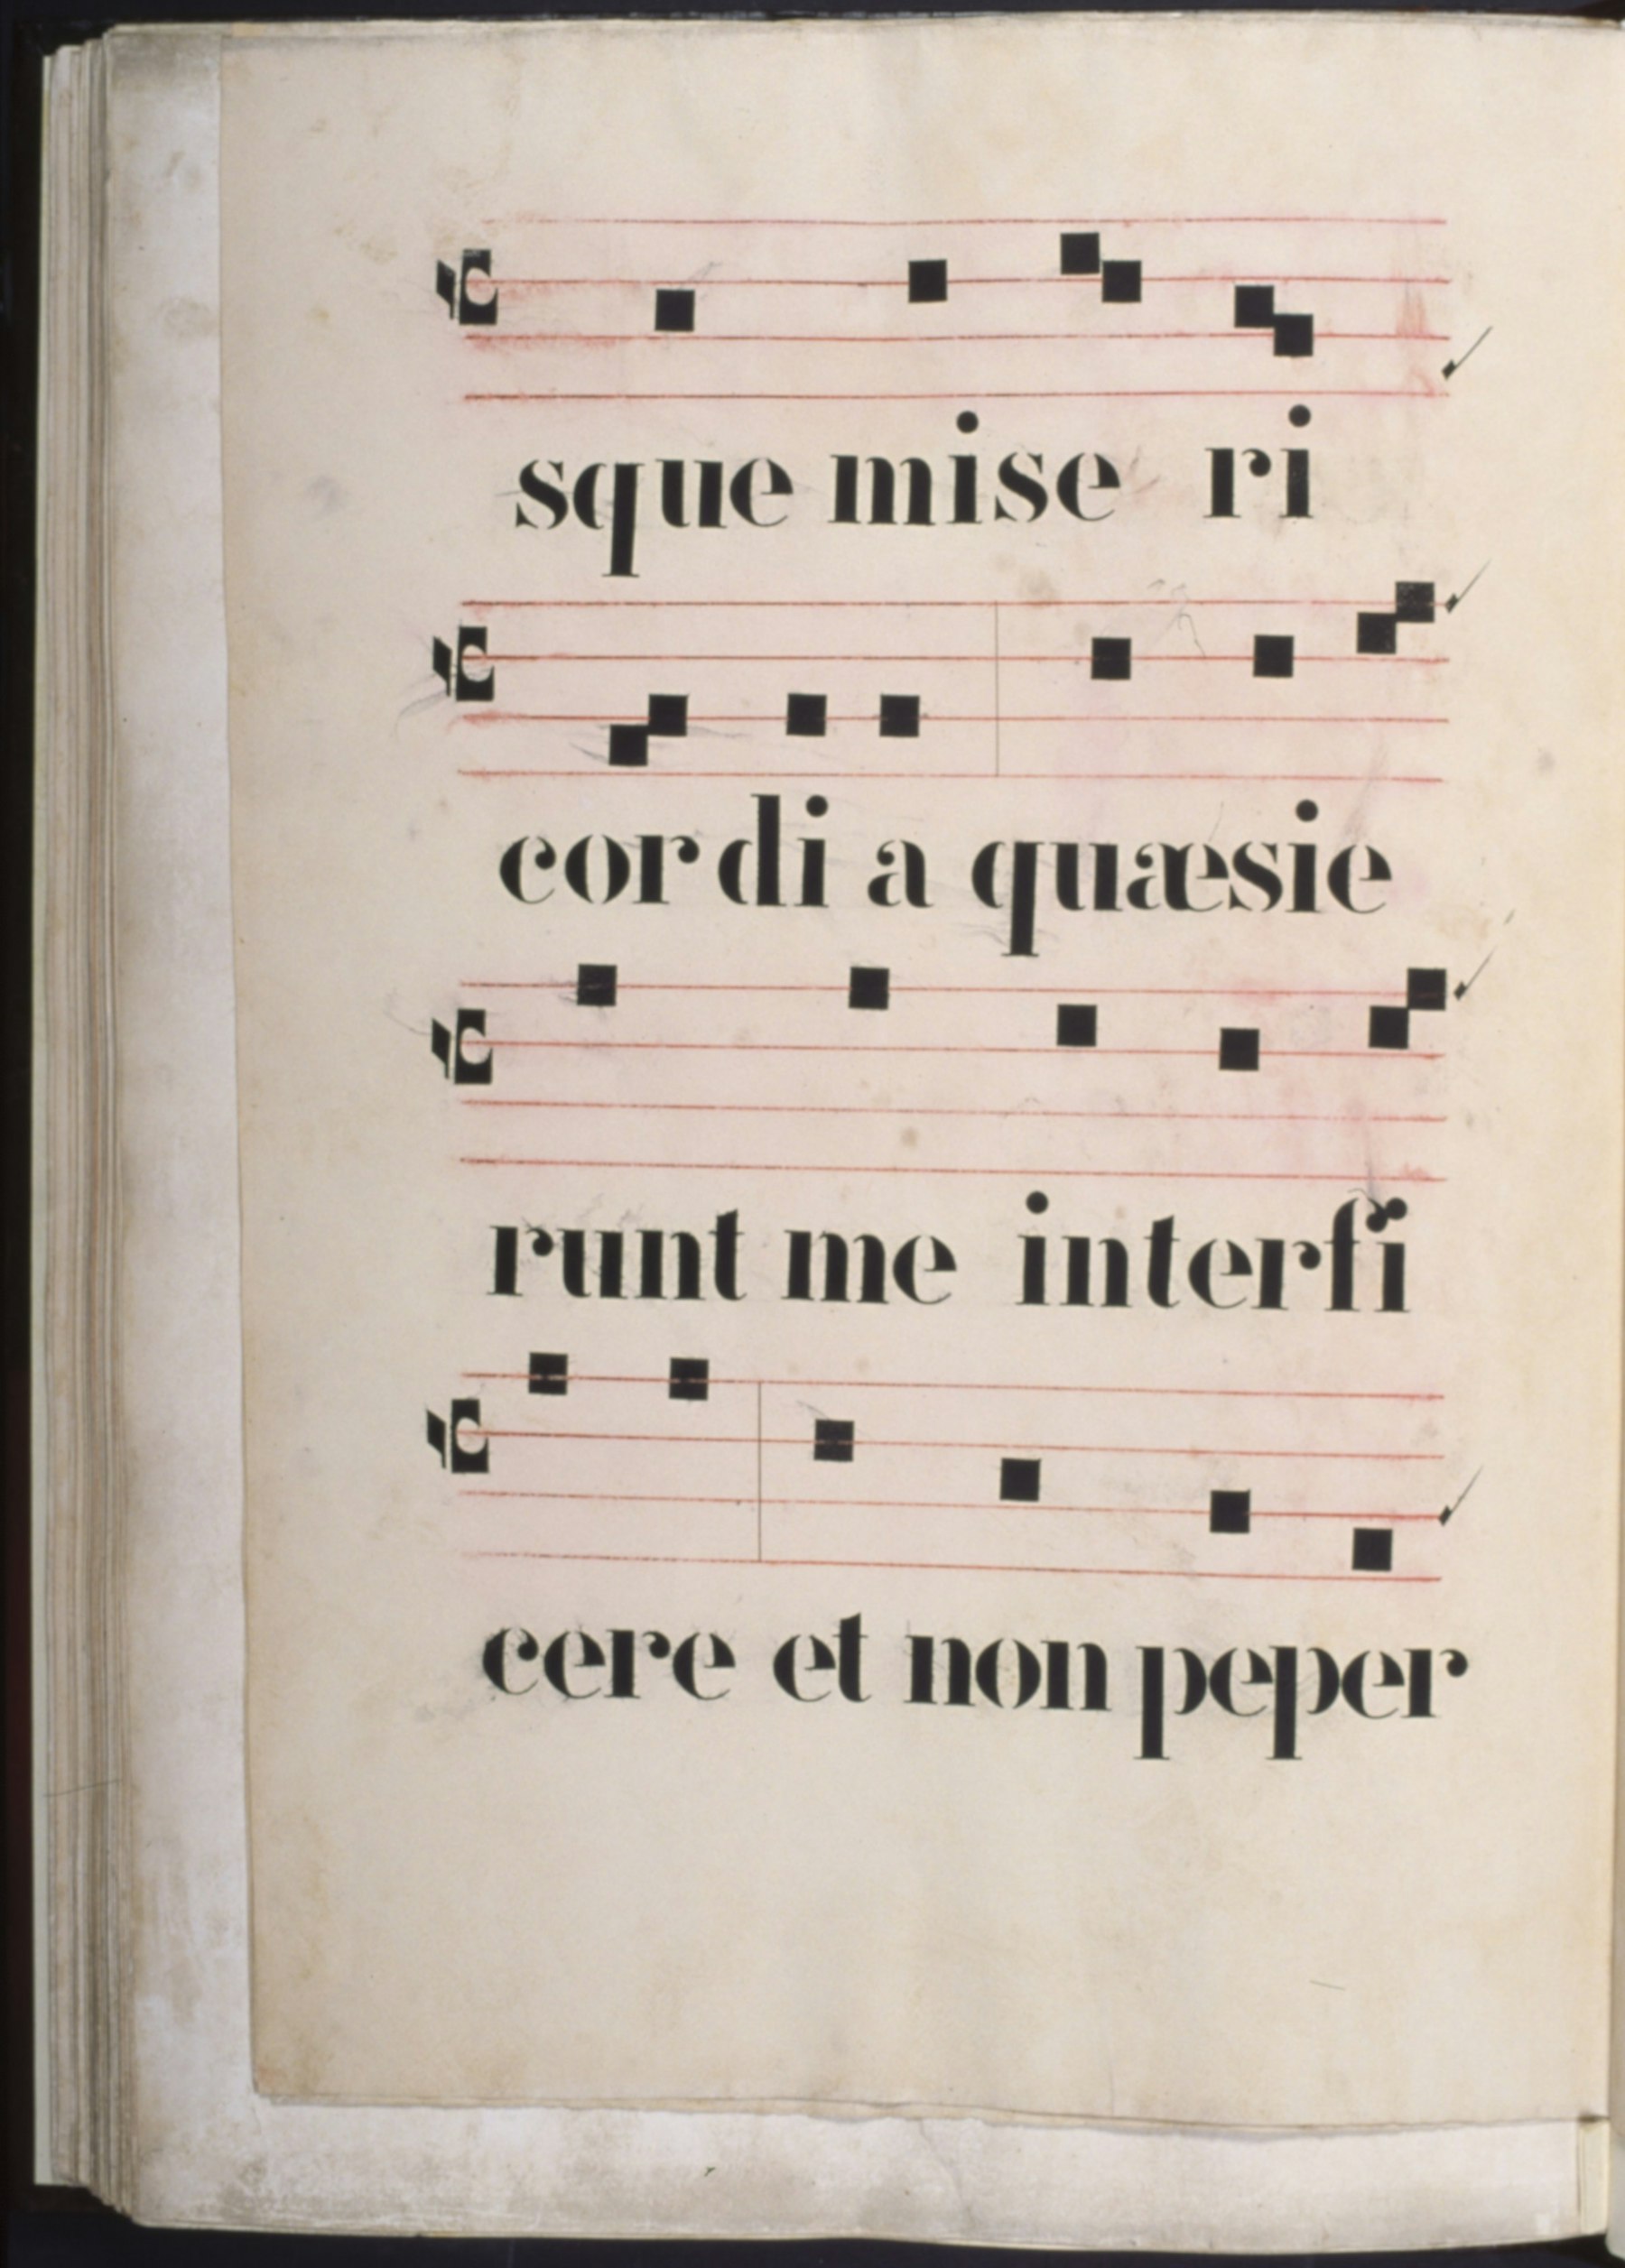 sque mise ri
cor di a quæsie
runt me interfi
cere et non peper